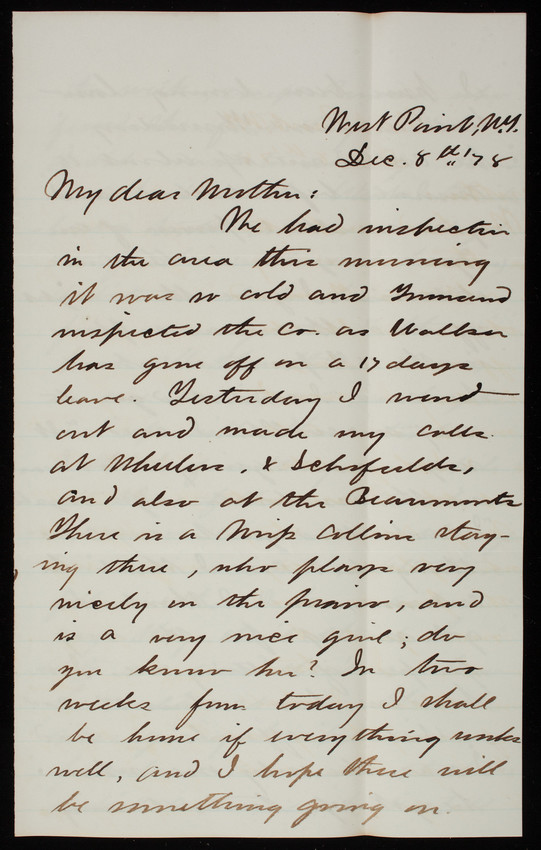 West Point, N.Y.
Dec. 8th '78
My dear Mother:
We had inspection
in the area this morning
it was so cold and
inspected the Co. as
has gone off on a 17 days
leave. Yesterday I wend
out and made my calls
at Wheelers, & Schofields,
and also at the Beaumonts
There is a Miss Collins stay-
ing there, who plays very
nicely on the piano, and
is a very nice girl; do
you know her? In two
weeks from today I shall
be home if everything works
well, and I hope there will
be something going on.